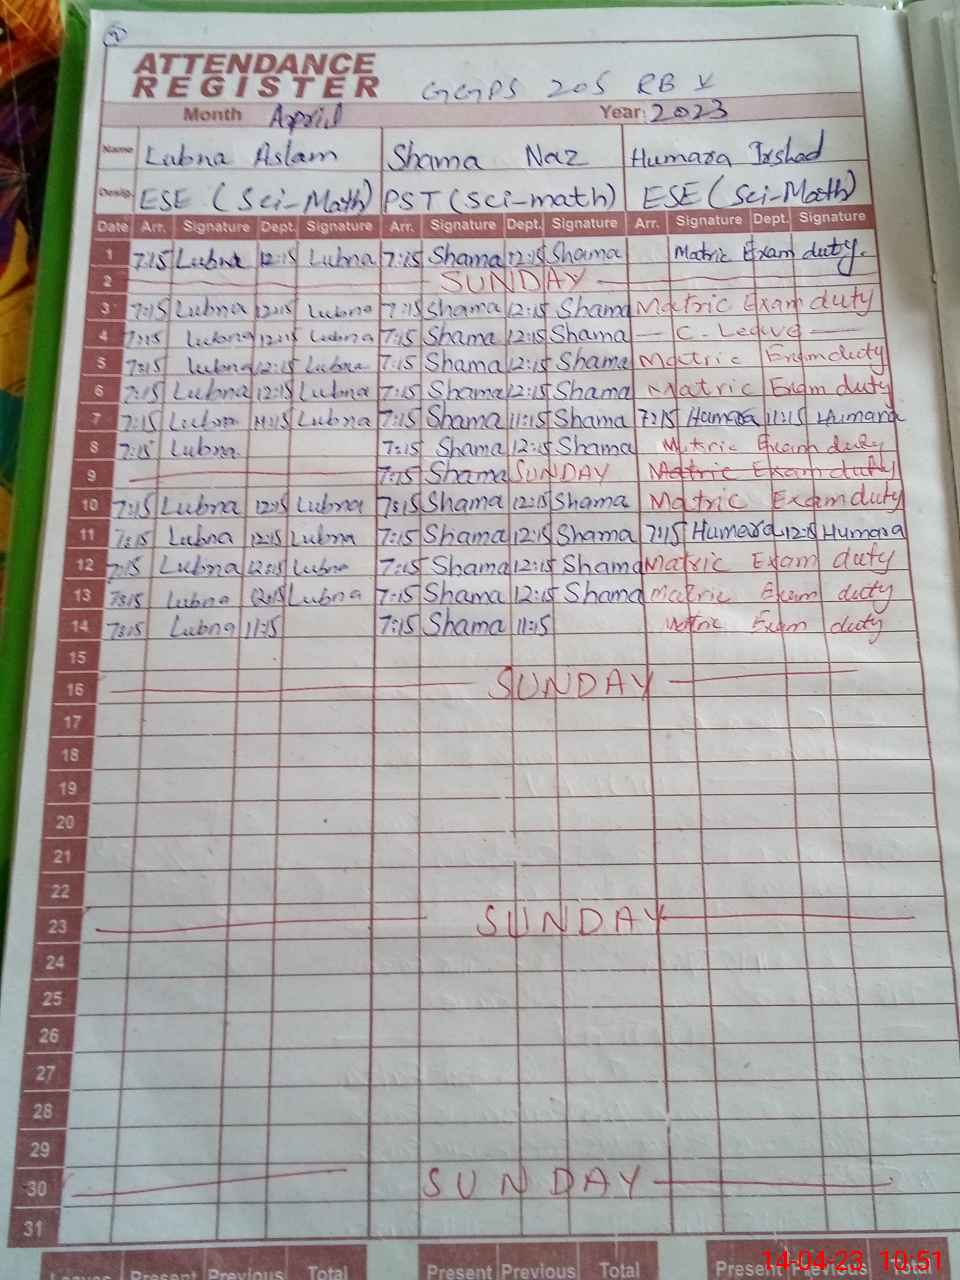 2
ATTENDANCE
REGISTER GGPS 205 RB
Month April Year: 2023
Name Lubna Aslam Shama Naz Humara Irshad
Desig. ESE (Sci-Math) PST (Sci-math) ESE (Sci-Math)
Date Arr. Signature Dept. Signature Arr. Signature Dept. Signature Arr. Signature Dept. Signature
1 7:15 Lubna 12:15 Lubna 7:15 Shama 12:15 Shama Matric Exam duty.
2 SUNDAY
3 7:15 Lubna 12:15 Lubna 7:15 Shama 12:15 Shama Matric Exam duty
4 7:15 Lubna 12:15 Lubna 7:15 Shama 12:15 Shama — C. Leave —
5 7:15 Lubna 12:15 Lubna 7:15 Shama 12:15 Shama Matric Exam duty
6 7:15 Lubna 12:15 Lubna 7:15 Shama 12:15 Shama Matric Exam duty
7 7:15 Lubna 11:15 Lubna 7:15 Shama 11:15 Shama 7:15 Humara 11:15 Humara
8 7:15 Lubna 7:15 Shama 12:15 Shama Matric Exam duty
9 7:15 Shama SUNDAY Matric Exam duty
10 7:15 Lubna 12:15 Lubna 7:15 Shama 12:15 Shama Matric Exam duty
11 7:15 Lubna 12:15 Lubna 7:15 Shama 12:15 Shama 7:15 Humara 12:15 Humara
12 7:15 Lubna 12:15 Lubna 7:15 Shama 12:15 Shama Matric Exam duty
13 7:15 Lubna 12:15 Lubna 7:15 Shama 12:15 Shama Matric Exam duty
14 7:15 Lubna 11:15 7:15 Shama 11:15 Matric Exam duty
15
16 SUNDAY
17
18
19
20
21
22
23 SUNDAY
24
25
26
27
28
29
30 SUNDAY
31
Leaves Present Previous Total Present Previous Total Present Previous Total
14-04-23 10:51